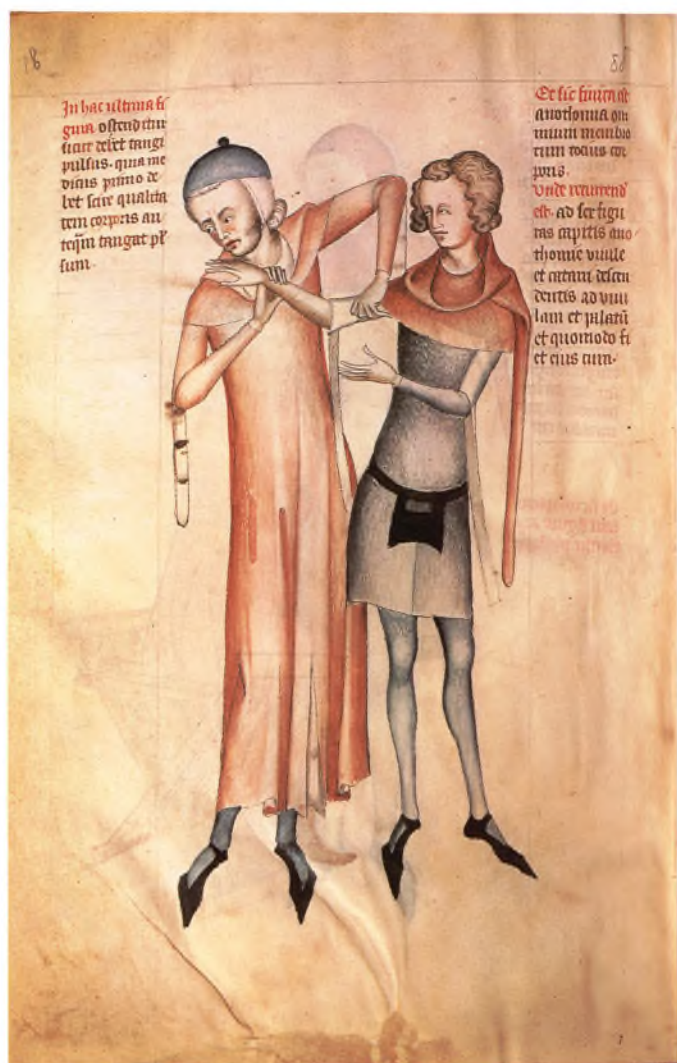 18
In hac ultima fi
gura ostenditur
sicut debet tangi
pulsus. quia me
dicus primo de
bet scire qualita
tem corporis an
teqm tangat pl
sum.
Et sic finita est
anothomia om
nium membro
rum tocius cor
poris.
Unde recurrend
est. ad sex figu
ras capitis ano
thomie
et descen
dentis ad vuu
lam et palatu
et quomodo fi
et eius cum.